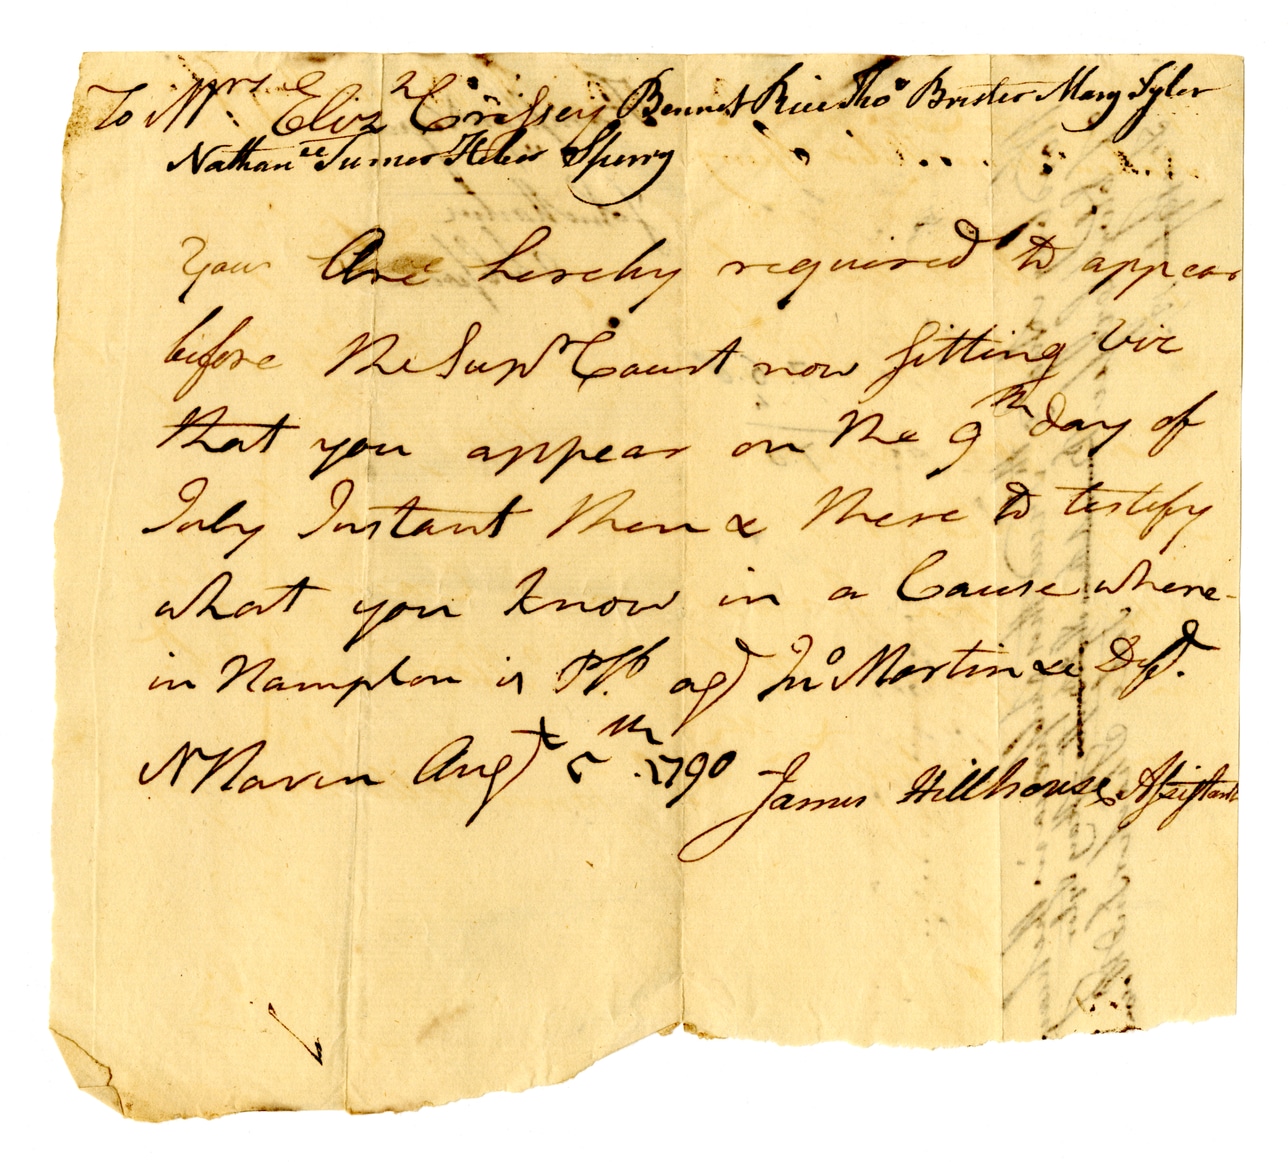 To Mrs. Elizh Crissey Bennet Rice Thos Brister Mary Tyler
Nathanll Turner Heber Sperry
Your Are hereby required to appear
before the Supr Court now sitting Viz
that you appear on the 9th day of
July Instant then & there to testify
what you know in a Cause where-
in Hampton is Plf. agt Jno Martin &c Deft.
N Haven Augt 5th 1790 James Hillhouse Assistant